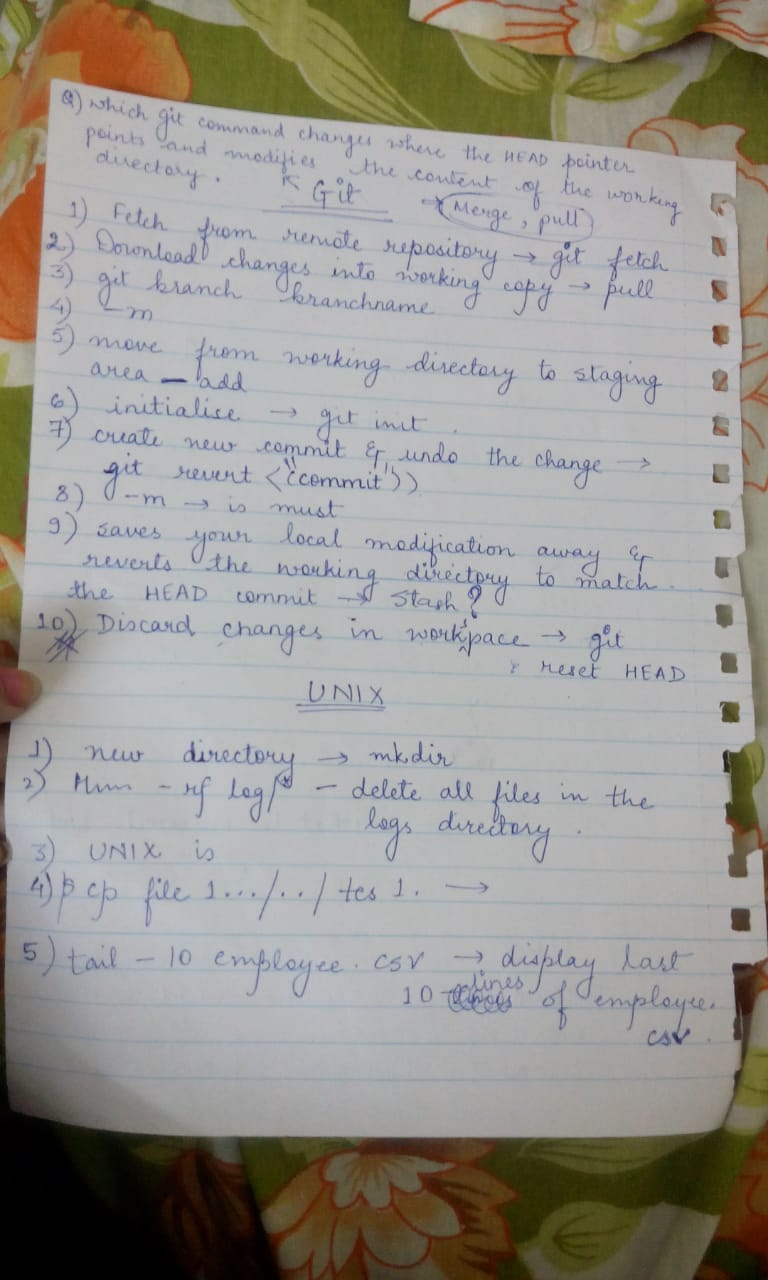 Q) which git command changes where the HEAD pointer
points and modifies the content of the working
directory.
Git
Merge, pull
1) Fetch from remote repository → git fetch
2) Download changes into working copy → pull
3) git branch branchname
4) -m
5) move from working directory to staging
area - add
6) initialise → git init.
7) create new commit & undo the change →
git revert <"commit">
8) -m → is must
9) saves your local modification away &
reverts the working directory to match
the HEAD commit → Stash?
10) Discard changes in workspace → git
reset HEAD
UNIX
1) new directory → mkdir
2) -rf log/* - delete all files in the
logs directory.
3) UNIX is
4) cp file 1.../../ tcs 1. →
5) tail - 10 employee.csv → display last
10 lines of employee.
csv.